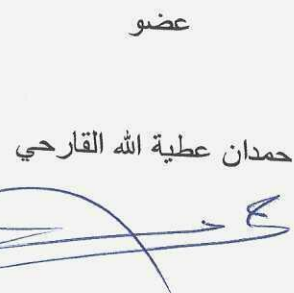 عضو
حمدان عطية الله القارحي